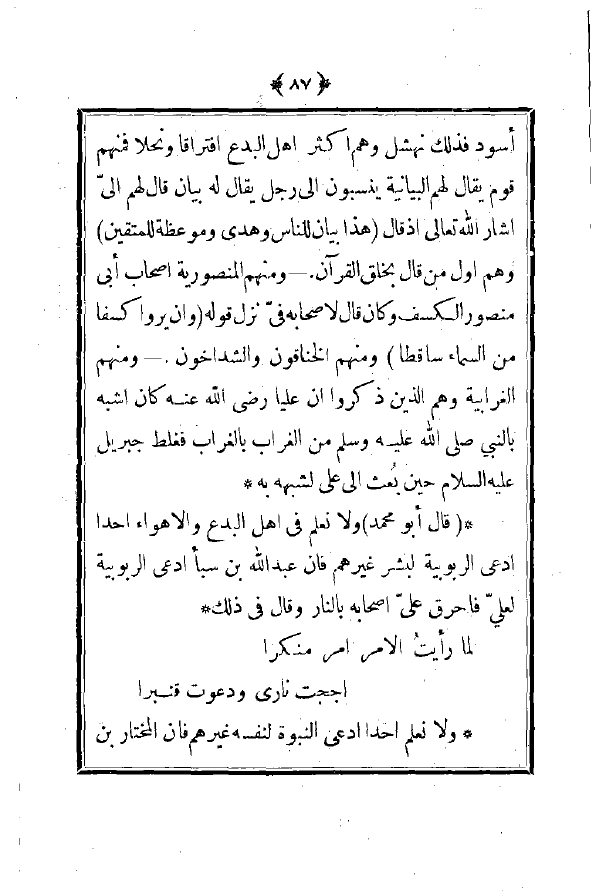 ﴿ ٨٧ ﴾
أسود فذلك نهشل وهم اكثر اهل البدع افتراقا ونحلا فمنهم
قوم يقال لهم البيانية ينسبون الى رجل يقال له بيان قال لهم الىّ
اشار الله تعالى اذ قال (هذا بيان للناس وهدى وموعظة للمتقين)
وهم اول من قال بخلق القرآن.—ومنهم المنصورية اصحاب أبى
منصور الكسف وكان قال لاصحابه فىّ نزل قوله (وان يروا كسفا
من السماء ساقطا) ومنهم الخناقون والشداخون .—ومنهم
الغرابية وهم الذين ذكروا ان عليا رضى الله عنه كان اشبه
بالنبي صلى الله عليه وسلم من الغراب بالغراب فغلط جبريل
عليه السلام حين بُعث الى على لشبهه به *
*( قال أبو محمد)ولا نعلم فى اهل البدع والاهواء احدا
ادعى الربوبية لبشر غيرهم فان عبدالله بن سبأ ادعى الربوبية
لعلىّ فاحرق علىّ اصحابه بالنار وقال فى ذلك*
لما رأيتُ الامر امر منكرا
اججت نارى ودعوت قنبرا
* ولا نعلم احدا ادعى النبوة لنفسه غيرهم فان المختار بن